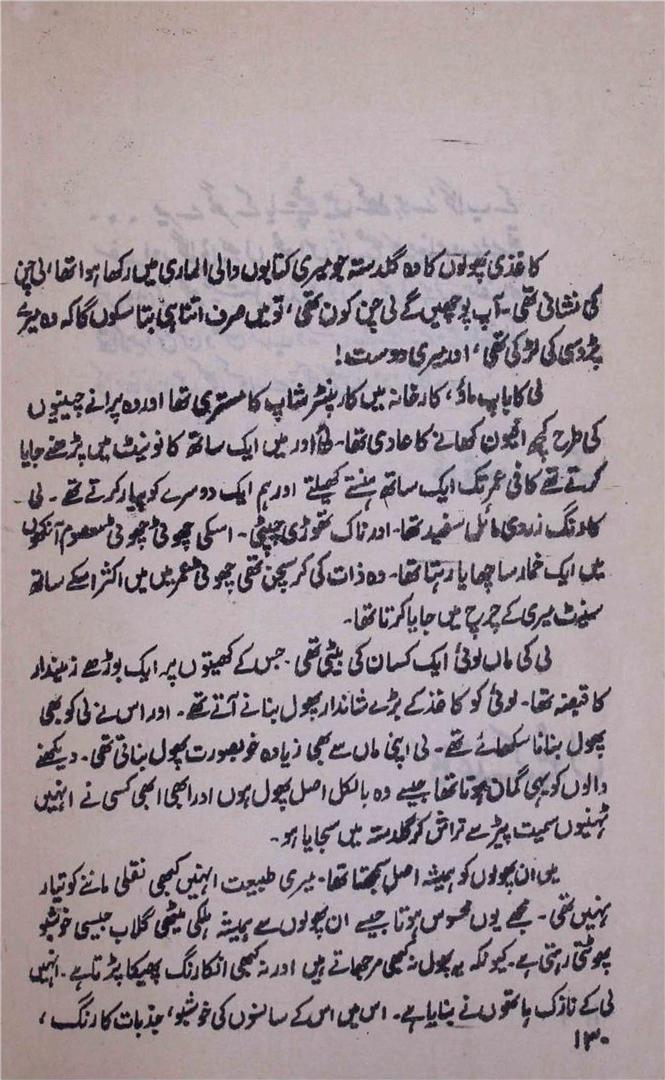 کاغذی پھولوں کا وہ گلدستہ جو میری کتابوں والی الماری میں رکھا ہوا تھا، لی چن
کی نشانی تھی۔ آپ پوچھیں گے لی چن کون تھی، تو میں صرف اتنا ہی بتا سکوں گا کہ وہ میرے
پڑوسی کی لڑکی تھی، اور میری دوست!
لی کا باپ ماؤ، کارخانہ میں کارپنٹر شاپ کا مستری تھا اور وہ پرانے چینیوں
کی طرح کچھ افیون کھانے کا عادی تھا۔ لی اور میں ایک ساتھ کانونیٹ میں پڑھنے جایا
کرتے تھے کافی عمر تک ایک ساتھ ہنستے کھیلتے اور ہم ایک دوسرے کو پیار کرتے تھے۔ لی
کا رنگ زردی مائل سفید تھا۔ اور ناک تھوڑی چپٹی۔ اسکی چھوٹی چھوٹی معصوم آنکھوں
میں ایک خمار سا چھایا رہتا تھا۔ وہ ذات کی کرسچن تھی چھوٹی عمر میں میں اکثر اسکے ساتھ
سینٹ میری کے چرچ میں جایا کرتا تھا۔
لی کی ماں لوئی ایک کسان کی بیٹی تھی۔ جس کے کھیتوں پر ایک بوڑھے زمیندار
کا قبضہ تھا۔ لوئی کو کاغذ کے بڑے شاندار پھول بنانے آتے تھے۔ اور اس نے لی کو بھی
پھول بنانا سکھائے تھے۔ لی اپنی ماں سے بھی زیادہ خوبصورت پھول بناتی تھی۔ دیکھنے
والوں کو یہی گمان ہوتا تھا جیسے وہ بالکل اصل پھول ہوں اور ابھی ابھی کسی نے انہیں
ٹہنیوں سمیت پیڑ سے تراش کر گلدستہ میں سجایا ہو۔
میں ان پھولوں کو ہمیشہ اصل سمجھتا تھا۔ میری طبیعت انہیں کبھی نقلی ماننے کو تیار
نہیں تھی۔ مجھے یوں محسوس ہوتا جیسے ان پھولوں سے ہمیشہ ہلکی میٹھی گلاب جیسی خوشبو
پھوٹتی رہتی ہے۔ کیونکہ یہ پھول نہ کبھی مرجھاتے ہیں اور نہ کبھی انکا رنگ پھیکا پڑتا ہے۔ انہیں
لی کے نازک ہاتھوں نے بنایا ہے۔ اس میں اس کے سانسوں کی خوشبو، جذبات کا رنگ،
۱۳۰